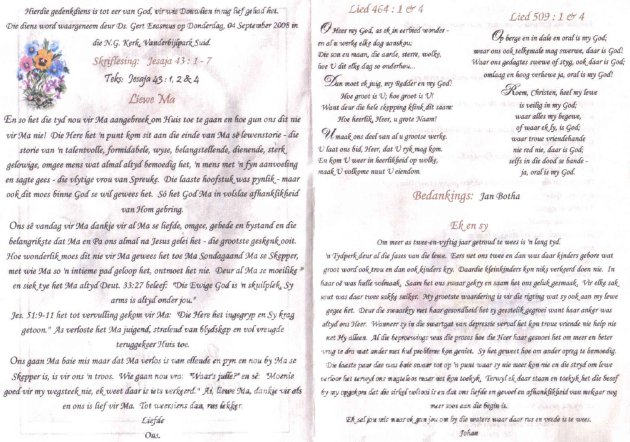 Hierdie gedenkdiens is tot eer van God, vir wie Douvlien innig lief gehad het.
Die diens word waargeneem deur Ds. Gert Erasmus op Donderdag, 04 September 2008 in
die N.G. Kerk, Vanderbijlpark Suid.
Skriflesing: Jesaja 43 : 1 - 7
Teks: Jesaja 43 : 1, 2 & 4
Liewe Ma
En so het die tyd nou vir Ma aangebreek om Huis toe te gaan en hoe gun ons dit nie
vir Ma nie! Die Here het 'n punt kom sit aan die einde van Ma se lewenstorie - die
storie van 'n talentvolle, formidabele, wyse, belangstellende, dienende, sterk
gelowige, omgee mens wat almal altyd bemoedig het, 'n mens met 'n fyn aanvoeling
en sagte gees - die vlytige vrou van Spreuke. Die laaste hoofstuk was pynlik - maar
ook dit moes binne God se wil gewees het. Só het God Ma in volslae afhanklikheid
van Hom gebring.
Ons sê vandag vir Ma dankie vir al Ma se liefde, omgee, gebede en bystand en die
belangrikste dat Ma en Pa ons almal na Jesus gelei het - die grootste geskenk ooit.
Hoe wonderlik moes dit nie vir Ma gewees het toe Ma Sondagaand Ma se Skepper,
met wie Ma so 'n intieme pad geloop het, ontmoet het nie. Deur al Ma se moeilike
en siek tye het Ma altyd Deut. 33:27 beleef: "Die Ewige God is 'n skuilplek, Sy
arms is altyd onder jou."
Jes. 51:9-11 het tot vervulling gekom vir Ma: "Die Here het ingegryp en Sy krag
getoon." As verloste het Ma juigend, stralend van blydskap en vol vreugde
teruggekeer Huis toe.
Ons gaan Ma baie mis maar dat Ma verlos is van ellende en pyn en nou by Ma se
Skepper is, is vir ons 'n troos. Wie gaan nou vra: "Waar's julle?" en sê: "Moenie
goed vir my wegsteek nie, ek weet daar is iets verkeerd." Ag, liewe Ma, dankie vir als
en ons is lief vir Ma. Tot weersiens dan, rus lekker.
Liefde
Ons.
Lied 464 : 1 & 4
O Heer my God, as ek in eerbied wonder -
en al u werke elke dag aanskou:
Die son en maan, die aarde, sterre, wolke,
hoe U dit elke dag so onderhou...
Dan moet ek juig, my Redder en my God!
Hoe groot is U; hoe groot is U!
Want deur die hele skepping klink dit saam:
Hoe heerlik, Heer, u grote Naam!
U maak ons deel van al u grootse werke.
U laat ons bid, Heer, dat U ryk mag kom.
En kom U weer in heerlikheid op wolke,
maak U volkome nuut U eiendom.
Lied 509 : 1 & 4
Op berge en in dale en oral is my God;
waar ons ook telkemale mag swerwe, daar is God!
Waar ons gedagtes swewe of styg, ook daar is God;
omlaag en hoog verhewe ja, oral is my God!
Roem, Christen, heel my lewe
is veilig in my God;
waar alles my begewe,
of waar ek ly, is God;
waar troue vriendehande
nie red nie, daar is God;
selfs in die dood se bande -
ja, oral is my God.
Bedankings: Jan Botha
Ek en sy
Om meer as twee-en-vyftig jaar getroud te wees is 'n lang tyd.
'n Tydperk deur al die fases van die lewe. Eers net ons twee en dan was daar kinders gebore wat
groot word ook trou en dan ook kinders kry. Daardie kleinkinders kon niks verkeerd doen nie. In
haar oë was hulle volmaak. Saam het ons swaar gekry en saam het ons geluk gesmaak. Vir elke sak
sout was daar twee sakke suiker. My grootste waardering is vir die rigting wat sy ook aan my lewe
gegee het. Deur die swaarkry met haar gesondheid het sy geestelik gegroei want haar anker was
altyd ons Heer. Wanneer sy in die swartgat van depressie verval het kon troue vriende nie help nie
net Hy alleen. Al die beproewings was die proses hoe die Heer haar gesnoei het om meer en beter
vrug te dra wat ander met hul probleme kon genies. Sy het geweet hoe om ander op reg te bemoedig.
Die laaste paar dae was baie swaar tot op 'n punt waar sy nie meer kon nie en die stryd om lewe
verloor het terwyl ons magteloos maar net kon toekyk. Terwyl ek daar staan en toekyk het die besef
by my opgekom dat die sirkel voltooi is en dat ons liefde en gevoel en afhanklikheid van mekaar nog
meer soos aan die begin is.
Ek sal jou mis maar ek gun jou om by die waters waar daar rus en vrede is te wees.
Johan